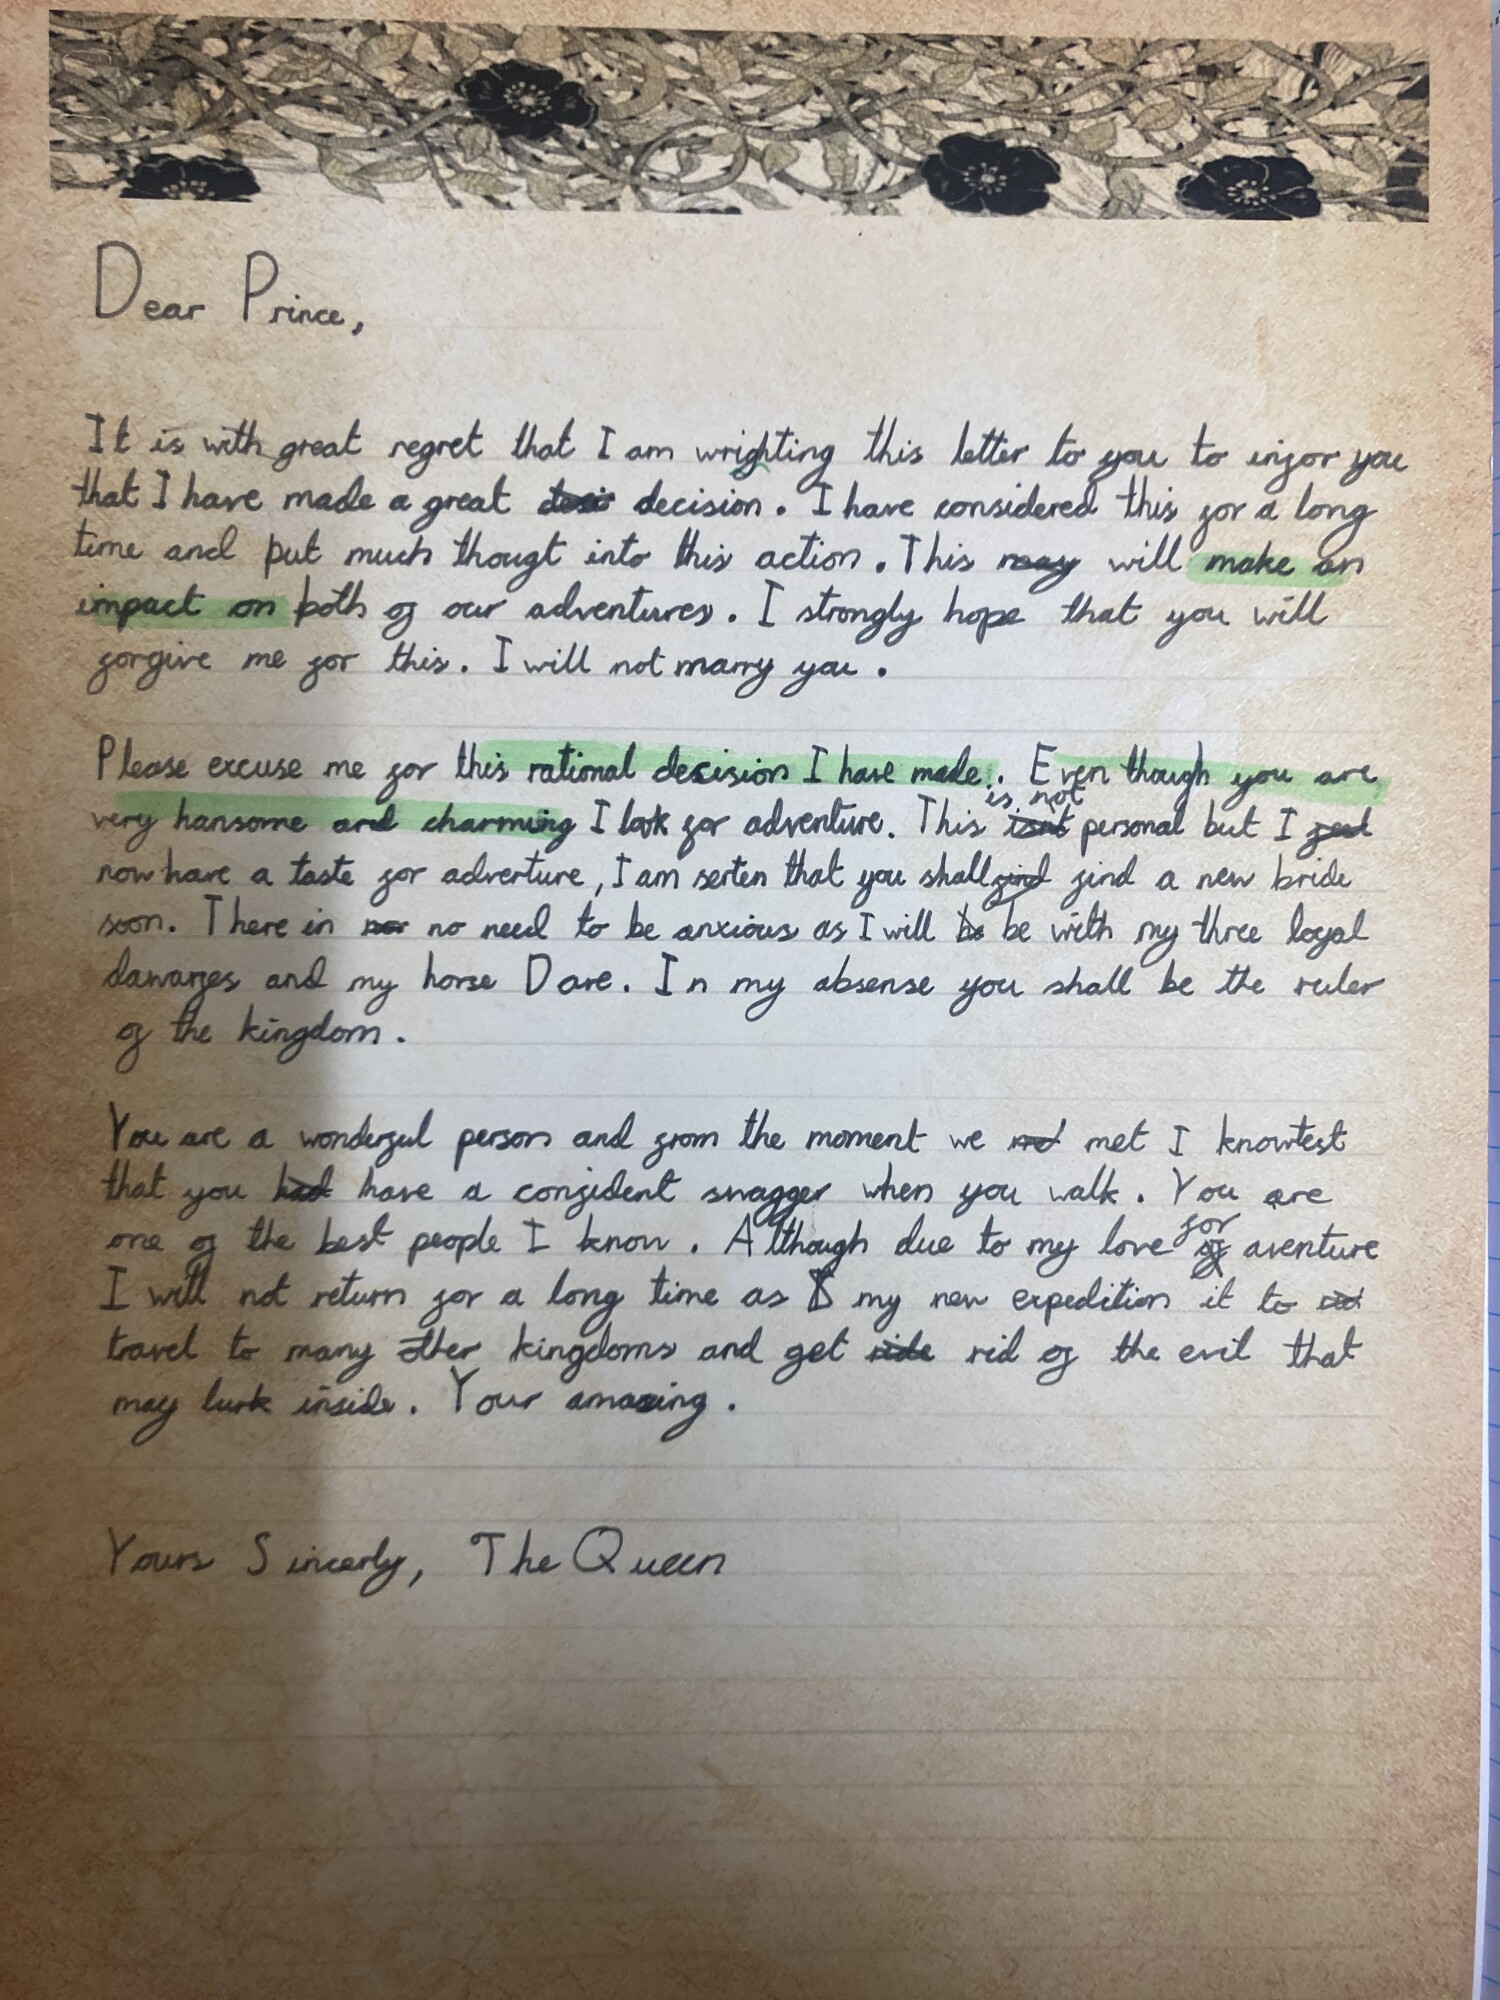 Dear Prince,
It is with great regret that I am wrighting this letter to you to infor you
that I have made a great decision. I have considered this for a long
time and put much thougt into this action. This may will make an
impact on both of our adventures. I strongly hope that you will
forgive me for this. I will not marry you.
Please excuse me for this rational decision I have made. Even though you are
very hansome and charming I look for adventure. This is not isnt personal but I
now have a taste for adverture, I am serten that you shall find find a new bride
soon. There in no need to be anxious as I will be be with my three loyal
dawarfes and my horse Dave. In my absense you shall be the ruler
of the kingdom.
You are a wonderful person and from the moment we met I knowtest
that you had have a confident swagger when you walk. You are
one of the best people I know. Although due to my love for of aventure
I will not return for a long time as my new expedition it to
travel to many other kingdoms and get ride rid of the evil that
may lurk inside. Your amazing.
Yours Sincerly, The Queen